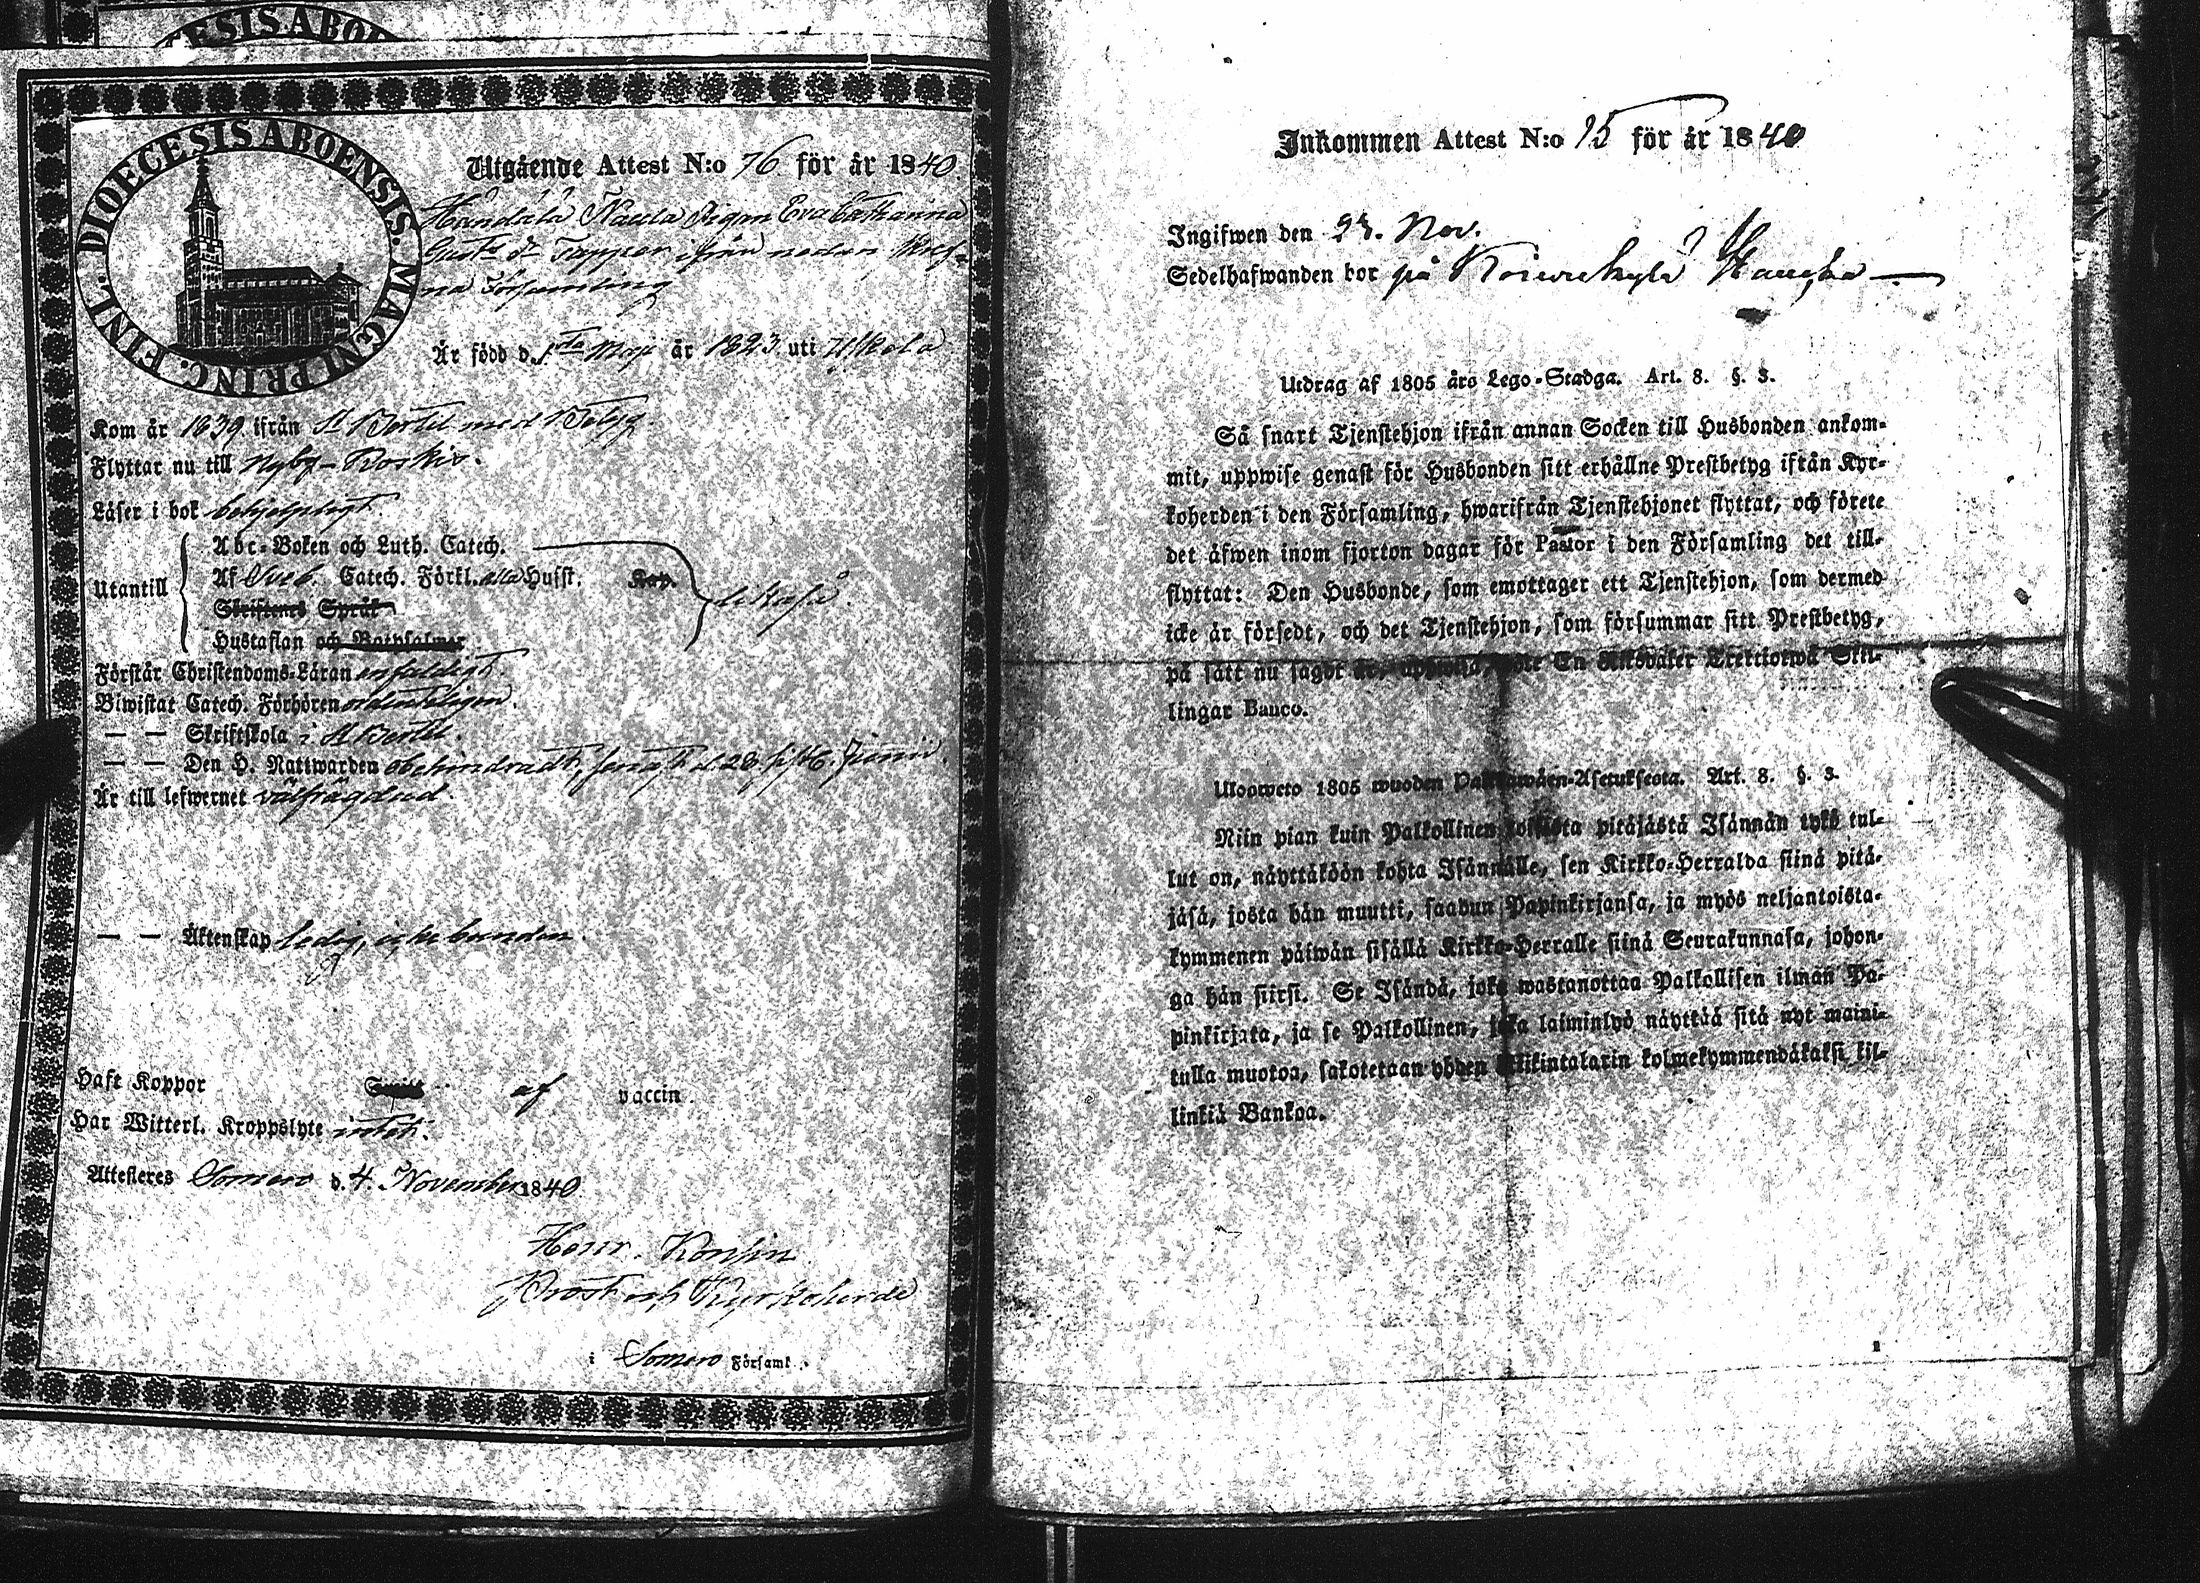 DIOECESIS ABOENSIS. MAGNI PRINC. FINL.
Utgående Attest N:o 76 för år 1840
Pigan Eva Catharina
Gusts dr ifrån nedan
na Församling
Är född d. 1sta Maji år 1823 uti
Kom år 1839 ifrån St Bertel med Betyg.
Flyttar nu till Nyby-Koskis.
Läser i bok behjelpligt.
Utantill
Abc-Boken och Luth. Catech.
Af Sveb. Catech. Förkl. alla Husst. Kap. likaså.
Skriftenes Språk
Hustaflan och Botpsalmer
Förstår Christendoms-Läran enfaldigt.
Biwistat Catech. Förhören ordenteligen.
— — Skriftskola i St Bertel.
— — Den H. Nattwarden obehindradt, senast d. 28 Junii.
Är till lefwernet välfrägdad.
— — Äktenskap ledig, icke bunden.
Haft Koppor af vaccin.
Har Witterl. Kroppslyte intet.
Attesteres Somero d. 4. November 1840
Henr. Konsin
Prost och Kyrkoherde
i Somero Församl.
Inkommen Attest N:o 15 för år 1840
Ingifwen den 23. Nov.
Sedelhafwanden bor på
Utdrag af 1805 års Lego-Stadga. Art. 8. §. 3.
Så snart Tjenstehjon ifrån annan Socken till Husbonden ankom-
mit, uppwise genast för Husbonden sitt erhållne Prestbetyg ifrån Kyr-
koherden i den Församling, hwarifrån Tjenstehjonet flyttat, och förete
det äfwen inom fjorton dagar för Pastor i den Församling det till-
flyttat: Den Husbonde, som emottager ett Tjenstehjon, som dermed
icke är försedt, och det Tjenstehjon, som försummar sitt Prestbetyg,
på sätt nu sagdt är, uppwisa, böte En Riksdaler Trettiotwå Skil-
lingar Banco.
Ulosweto 1805 wuoden Palkkawäen-Asetuksesta. Art. 8. §. 3.
Niin pian kuin Palkollinen toisesta pitäjästä Isännän tykö tul-
lut on, näyttäköön kohta Isännälle, sen Kirkko-Herralda siinä pitä-
jäsä, josta hän muutti, saadun Papinkirjansa, ja myös neljäntoista-
kymmenen päiwän sisällä Kirkko-Herralle siinä Seurakunnasa, johon-
ga hän siirsi. Se Isändä, joka wastanottaa Palkollisen ilman Pa-
pinkirjata, ja se Palkollinen, joka laiminlyö näyttää sitä nyt maini-
tulla muotoa, sakotetaan yhden Riikintalarin kolmekymmendäkaksi kil-
linkiä Bankoa.